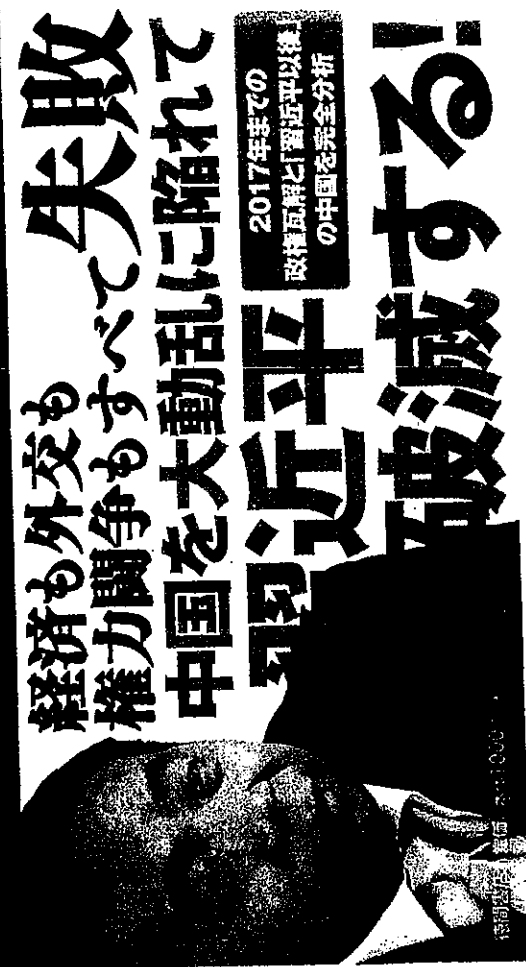 経済も外交も
権力闘争もすべて失敗
中国を大動乱に陥れて
習近平
2017年までの
政権瓦解と「習近平以後」
の中国を完全分析
破滅する!
徳間書店